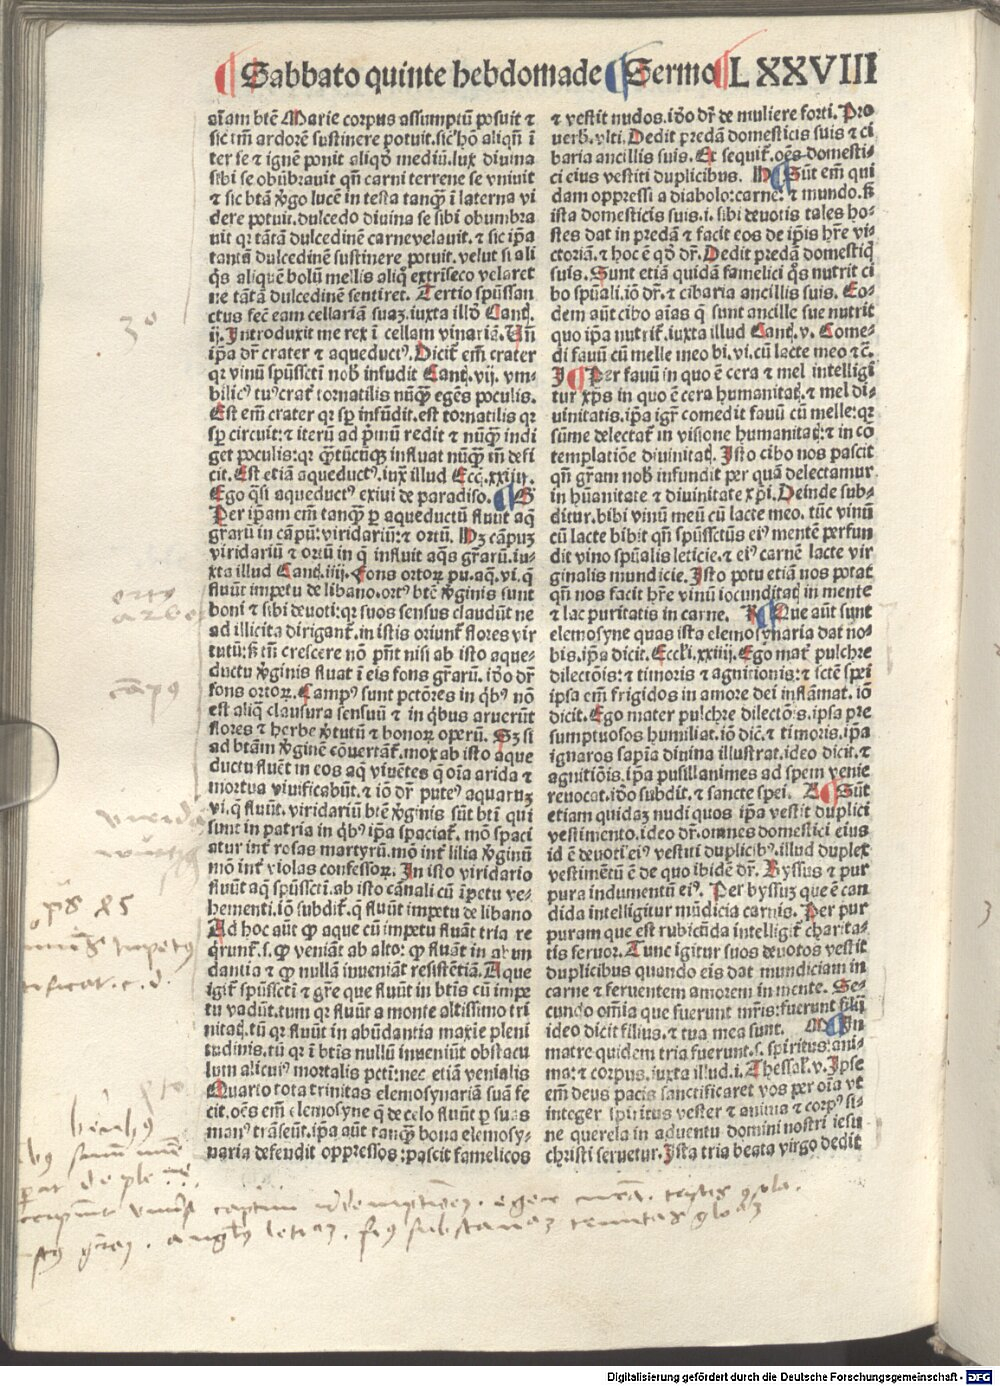 Sabbato quinte hebdomade Sermo LXXVIII
aīam btē Marie corpus assumptū posuit ⁊
sic tm̄ ardorē sustinere potuit. sic̄ hō aliqn̄ ī
ter se ⁊ ignē ponit aliqd̄ mediū. lux diuina
sibi se obūbrauit qn̄ carni terrene se vniuit
⁊ sic btā v̓go lucē in testa tanqȝ ī laterna vi
dere potuit. dulcedo diuina se sibi obumbra
uit qr tātā dulcedinē carne velauit. ⁊ sic ip̄a
tantā dulcedinē sustinere potuit. velut si ali
q̄s aliquē bolū mellis aliq̄ extriseco velaret
ne tātā dulcedinē sentiret. Tertio sp̄ussan
ctus fec̄ eam cellariā suaȝ. iuxta illd̄ Cant̄.
ij. Introduxit me rex ī cellam vinariā. Vn̄
ip̄a dr̄ crater ⁊ aqueductꝰ. Dicit̄ em̄ crater
qr vinū sp̄ussctī nob̄ infudit Cant̄. vij. vm-
bilicꝰ tuꝰ crat̄ tornatilis nūqȝ egēs poculis.
Est em̄ crater qr sp̄ infūdit. est tornatilis qr
sp̄ circuit: ⁊ iterū ad p̄mū redit ⁊ nūqȝ indi
get poculis: qr qȝtūcūqȝ influat nūqȝ tn̄ defi
cit. Est etiā aqueductꝰ. iux̄ illud Ecc̄. xxiiij.
Ego q̄si aqueductꝰ exiui de paradiso. G
Per ip̄am em̄ tanqȝ ꝑ aqueductū fluūt aq̄
gr̄arū in cāpū: viridariū: ⁊ ortū. Hȝ cāpuȝ
viridariū ⁊ ortū in q̄ influit aq̄s gr̄arū. iu-
xta illud Cant̄. iiij. Fons ortoꝝ pu. aq̄. vi. q̄
fluūt impetu de libano. ortꝰ btē v̓ginis sunt
boni ⁊ sibi deuoti: qr suos sensus claudūt ne
ad illicita dirigant̄. in istis oriunt̄ flores vir
tutū: sȝ tn̄ crescere nō pn̄t nisi ab isto aque-
ductu v̓ginis fluat ī eis fons gr̄arū. iō dr̄
fons ortoꝝ. Campꝰ sunt pctōres in qb̄ꝰ nō
est aliq̄ clausura sensuū ⁊ in qb̄us aruerūt
flores ⁊ herbe v̓tutū ⁊ bonoꝝ operū. Sȝ si
ad btām v̓ginē cōuertāt̄. mox ab isto aque
ductu fluēt in eos aq̄ viuētes q̄ oīa arida ⁊
mortua viuificabūt. ⁊ iō dr̄ puteꝰ aquaruȝ
vi. q̄ fluūt. viridariū btē v̓ginis sūt btī qui
sunt in patria in qb̄ꝰ ip̄a spaciat̄. mō spaci
atur int̄ rosas martyrū. mō int̄ lilia v̓ginū
mō int̄ violas confessoꝝ. In isto viridario
fluūt aq̄ sp̄ussctī ab isto canali cū īpetu ve-
hementi. iō subdit̄. q̄ fluūt impetu de libano
Ad hoc aūt ꝙ aque cū impetu fluāt tria re
q̄runt̄. s. ꝙ veniāt ab alto: ꝙ fluāt in abun
dantia ⁊ ꝙ nullā inueniāt resistētiā. Aque
igit̄ sp̄ussctī ⁊ gr̄e que fluūt in btīs cū impe
tu vadūt. tum qr fluūt a monte altissimo tri
nitat̄. tū qr fluūt in abūdantia maxīe pleni
tudinis. tū qr ī btīs nullū inueniūt obstacu
lum alicuiꝰ mortalis pctī: nec etiā venialis
Quarto tota trinitas elemosynariā suā fe
cit. oēs em̄ elemosyne q̄ de celo fluūt ꝑ suas
manꝰ trāseūt. ip̄a aūt tanqȝ bona elemosy-
naria defendit oppressos: pascit famelicos
⁊ vestit nudos. iō dr̄ de muliere forti. Pro
uerb̄. vlti. Dedit predā domesticis suis ⁊ ci
baria ancillis suis. Et sequit̄. oēs domesti-
ci eius vestiti duplicibus. H Sūt em̄ qui
dam oppressi a diabolo: carne: ⁊ mundo. sȝ
ista domesticis suis. i. sibi deuotis tales ho-
stes dat in predā ⁊ facit eos de ip̄is hr̄e vi-
ctoriā. ⁊ hoc ē qd̄ dr̄. Dedit predā domesticꝭ
suis. Sunt etiā quidā famelici q̄s nutrit ci
bo sp̄uali. iō dr̄. ⁊ cibaria ancillis suis. Eo-
dem aūt cibo aīas q̄ sunt ancille sue nutrit
quo ip̄a nutrit̄. iuxta illud Cant̄. v. Come-
di fauū cū melle meo bi. vi. cū lacte meo ⁊c̄.
I Per fauū in quo ē cera ⁊ mel intelligi
tur xp̄s in quo ē cera humanitat̄. ⁊ mel di-
uinitatis. ip̄a igr̄ comedit fauū cū melle: qr
sūme delectat̄ in visione humanitat̄: ⁊ in cō
templatiōe diuinitat̄. Isto cibo nos pascit
qn̄ gr̄am nob̄ infundit per quā delectamur
in hūanitate ⁊ diuinitate xp̄i. Deinde sub-
ditur. bibi vinū meū cū lacte meo. tūc vinū
cū lacte bibit qn̄ sp̄ussctūs eiꝰ mentē perfun
dit vino sp̄ualis leticie. ⁊ eiꝰ carnē lacte vir
ginalis mundicie. Isto potu etiā nos potat
qn̄ nos facit hr̄e vinū iocunditat̄ in mente
⁊ lac puritatis in carne. K Que aūt sunt
elemosyne quas ista elemosynaria dat no-
bis. ip̄a dicit. Eccl̄i. xxiiij. Ego mat̄ pulchre
dilectōis: ⁊ timoris ⁊ agnitionis: ⁊ sct̄ē spei
ipsa em̄ frigidos in amore dei inflāmat. iō
dicit. Ego mater pulchre dilectōis. ipsa pre
sumptuosos humiliat. iō dic̄. ⁊ timoris. ip̄a
ignaros sap̄ia diuina illustrat. ideo dicit. ⁊
agnitiōis. ip̄a pusillanimes ad spem venie
reuocat. iō subdit. ⁊ sancte spei. L Sūt
etiam quidaȝ nudi quos ip̄a vestit duplici
vestimento. ideo dr̄. omnes domestici eius
id ē deuoti eiꝰ vestiti duplicibꝰ. illud duplex
vestimētū ē de quo ibidē dr̄. Byssus ⁊ pur
pura indumentū eiꝰ. Per byssuȝ que ē can
dida intelligitur mūdicia carnis. Per pur
puram que est rubicūda intelligit̄ charita-
tis feruor. Tunc igitur suos deuotos vestit
duplicibus quando eis dat mundiciam in
carne ⁊ feruentem amorem in mente. Se-
cundo om̄ia que fuerunt mr̄is: fuerunt filii
ideo dicit filius. ⁊ tua mea sunt. M In
matre quidem tria fuerunt. s. spiritus: ani-
ma: ⁊ corpus. iuxta illud. i. Thessal̄. v. Ipse
em̄ deus pacis sanctificaret vos per oīa vt
integer spiritus vester ⁊ anima ⁊ corpꝰ si-
ne querela in aduentu domini nostri iesu
christi seruetur. Ista tria beata virgo dedit
3º
ortꝰ
cāpꝰ
Digitalisierung gefördert durch die Deutsche Forschungsgemeinschaft - DFG